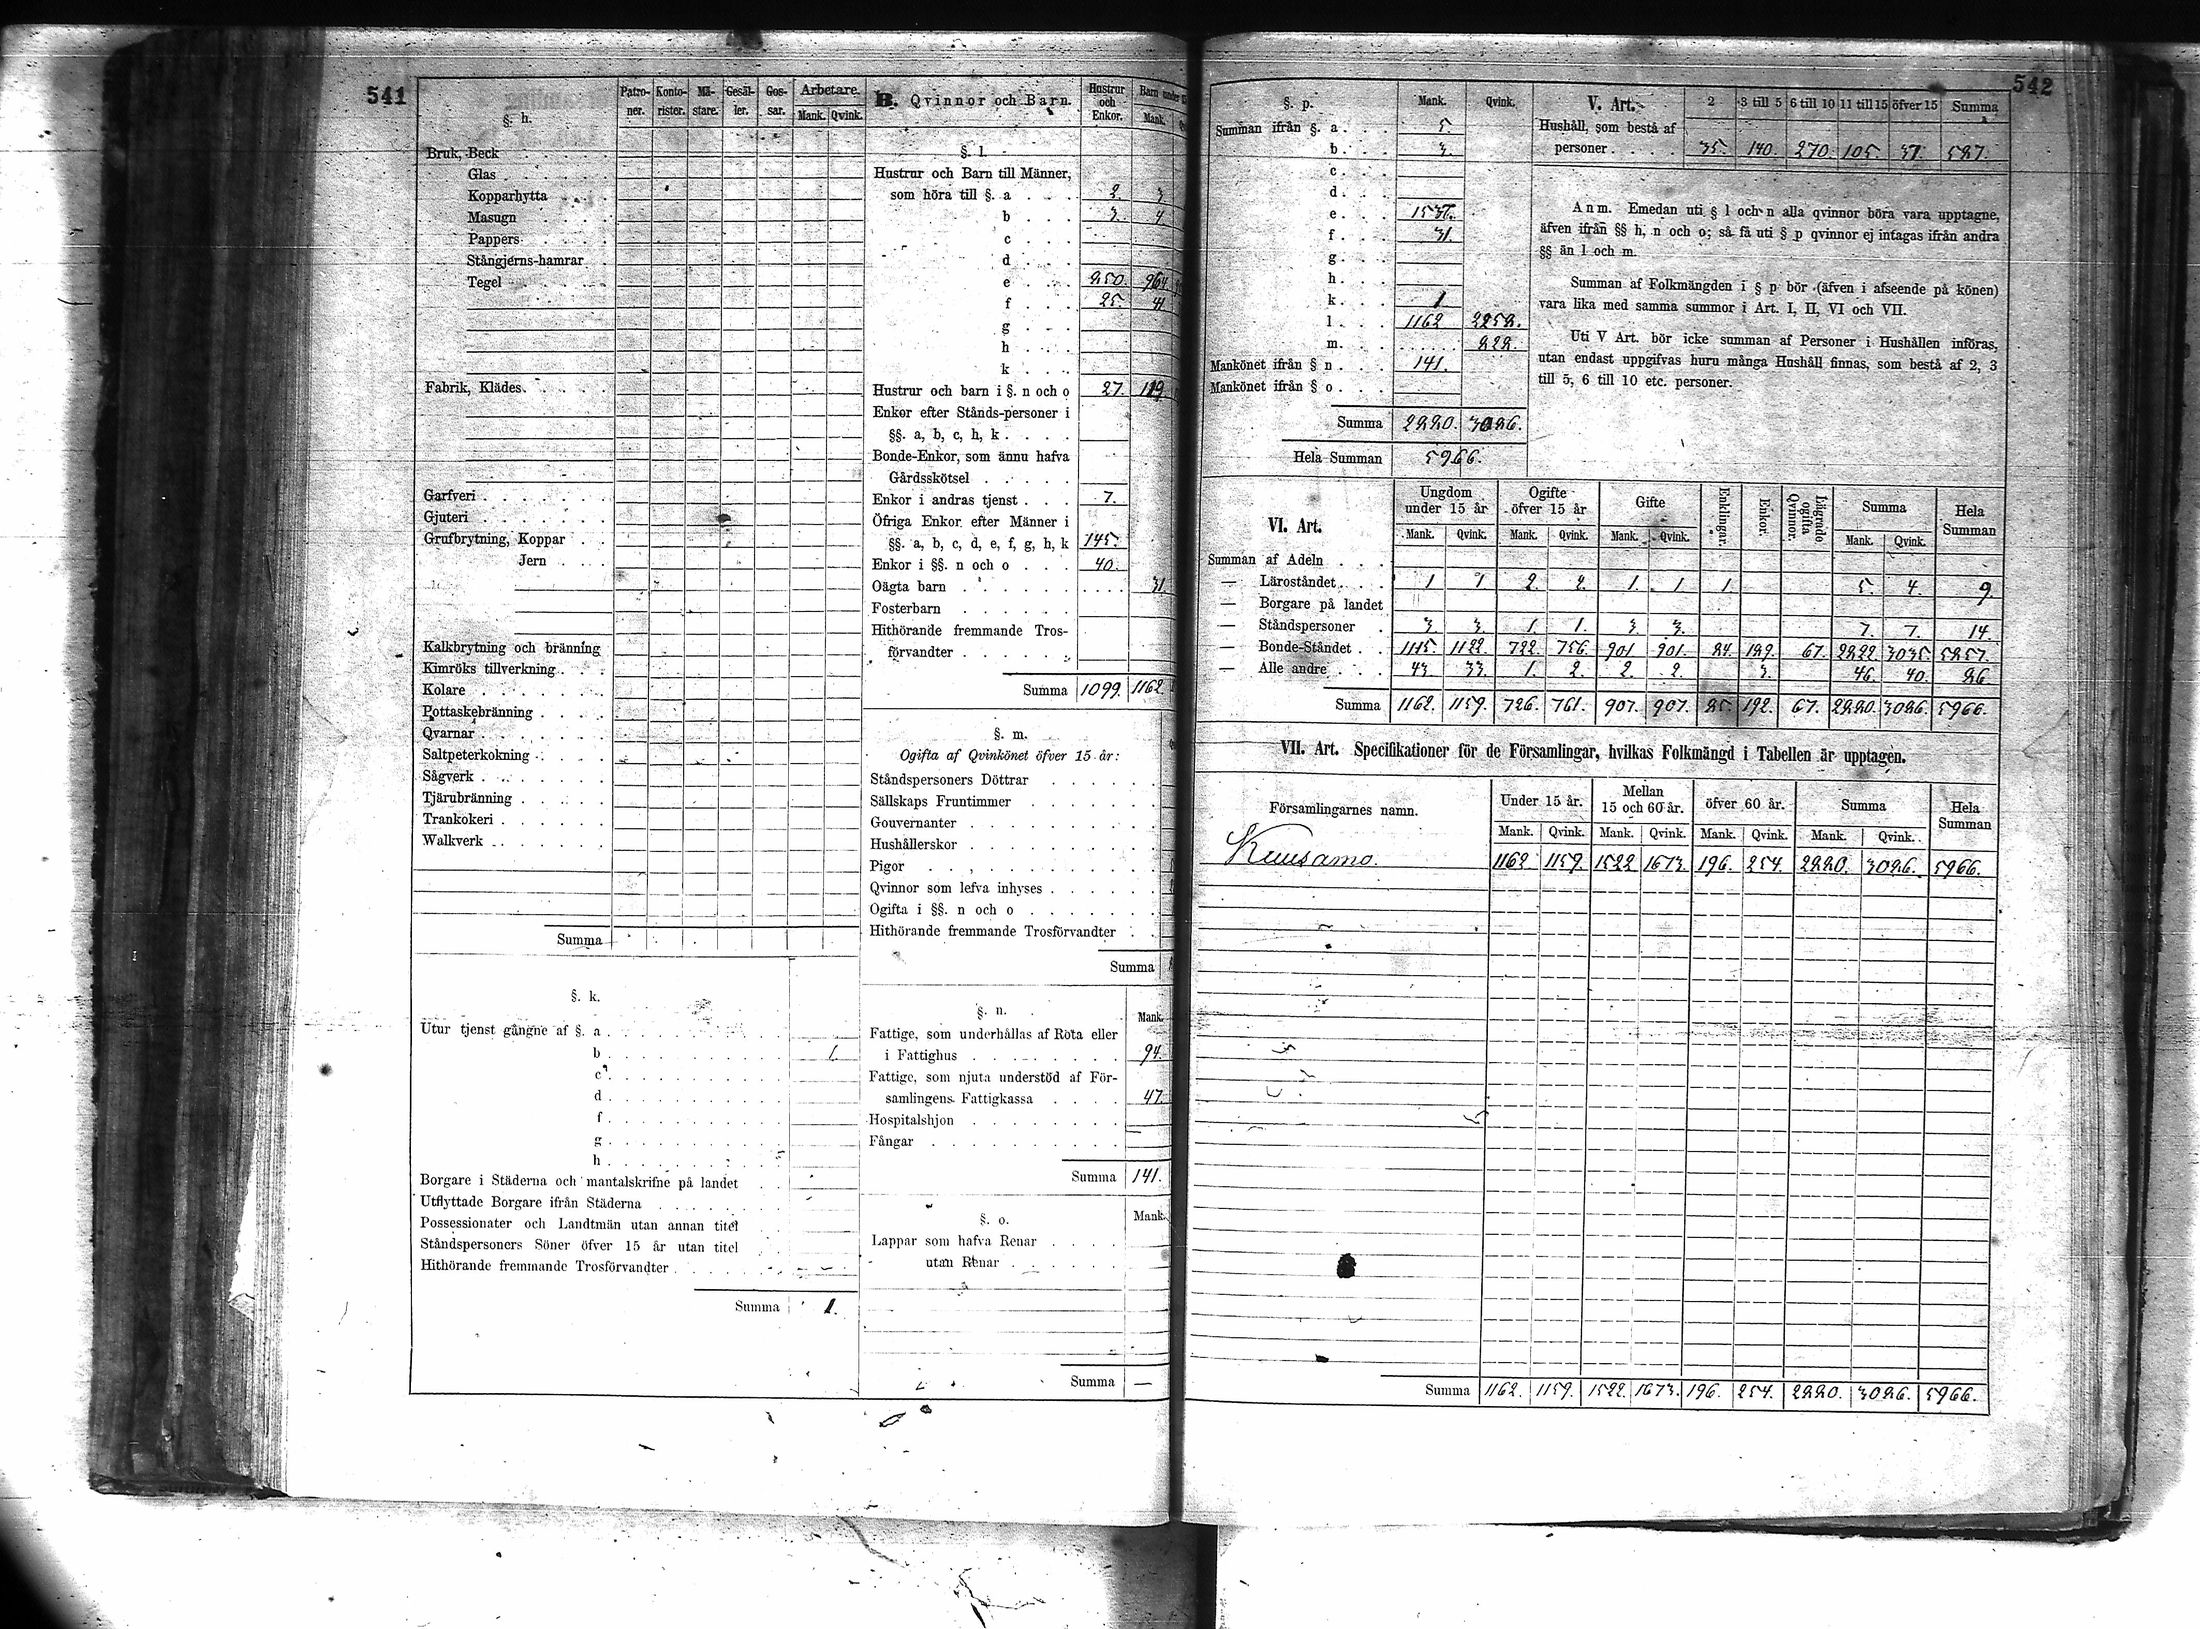 541
§. h.
Patro- Konto- Mä- Gesäl- Gos- Arbetare.
ner. rister. stare. ler. sar. Mank. Qvink.
Bruk, Beck
Glas
Kopparhytta
Masugn
Pappers
Stångjerns-hamrar
Tegel
Fabrik, Klädes
Garfveri
Gjuteri
Grufbrytning, Koppar
Jern
Kalkbrytning och bränning
Kimröks tillverkning
Kolare
Pottaskebränning
Qvarnar
Saltpeterkokning
Sågverk
Tjärubränning
Trankokeri
Walkverk
Summa
§. k.
Utur tjenst gångne af §. a
b 1.
c
d
f
g
h
Borgare i Städerna och mantalskrifne på landet
Utflyttade Borgare ifrån Städerna
Possessionater och Landtmän utan annan titel
Ståndspersoners Söner öfver 15 år utan titel
Hithörande fremmande Trosförvandter
Summa 1.
B. Qvinnor och Barn. Hustrur och Enkor. Barn under
Mank.
§. l.
Hustrur och Barn till Männer,
som höra till §. a 2. 3
b 3. 4
c
d
e 850. 964
f 25. 41
g
h
k
Hustrur och barn i §. n och o 27. 119
Enkor efter Stånds-personer i
§§. a, b, c, h, k
Bonde-Enkor, som ännu hafva
Gårdsskötsel
Enkor i andras tjenst 7.
Öfriga Enkor efter Männer i
§§. a, b, c, d, e, f, g, h, k 145.
Enkor i §§. n och o 40.
Oägta barn 31.
Fosterbarn
Hithörande fremmande Tros-
förvandter
Summa 1099. 1162.
§. m.
Ogifta af Qvinkönet öfver 15 år:
Ståndspersoners Döttrar
Sällskaps Fruntimmer
Gouvernanter
Hushållerskor
Pigor
Qvinnor som lefva inhyses
Ogifta i §§. n och o
Hithörande fremmande Trosförvandter
Summa
§. n. Mank.
Fattige, som underhållas af Rota eller
i Fattighus 94.
Fattige, som njuta understöd af För-
samlingens Fattigkassa 47.
Hospitalshjon —
Fångar
Summa 141.
§. o. Mank.
Lappar som hafva Renar
utan Renar
Summa —
542
§. p. Mank. Qvink.
Summan ifrån §. a 5.
b 3.
c
d
e 1537.
f 31.
g
h
k 1
l 1162 2258.
m 828.
Mankönet ifrån § n 141.
Mankönet ifrån § o
Summa 2880. 3086.
Hela Summan 5966.
V. Art. 2 3 till 5 6 till 10 11 till 15 öfver 15 Summa
Hushåll, som bestå af
personer 35. 140. 270. 105. 37. 587.
Anm. Emedan uti § l och n alla qvinnor böra vara upptagne,
äfven ifrån §§ h, n och o; så få uti § p qvinnor ej intagas ifrån andra
§§ än l och m.
Summan af Folkmängden i § p bör (äfven i afseende på könen)
vara lika med samma summor i Art. I, II, VI och VII.
Uti V Art. bör icke summan af Personer i Hushållen införas,
utan endast uppgifvas huru många Hushåll finnas, som bestå af 2, 3
till 5, 6 till 10 etc. personer.
VI. Art. Ungdom under 15 år Ogifte öfver 15 år Gifte Enklingar. Enkor. Lägrade ogifta Qvinnor. Summa Hela Summan
Mank. Qvink. Mank. Qvink. Mank. Qvink. Mank. Qvink.
Summan af Adeln
— Läroståndet 1 1 2. 2. 1. 1 1 5. 4. 9.
— Borgare på landet
— Ståndspersoner 3 3 1. 1. 3 3. 7. 7. 14.
— Bonde-Ståndet 1115. 1122. 722. 756. 901 901. 84. 189. 67. 2822. 3035. 5857.
— Alle andre 43. 33. 1. 2. 2. 2. 3. 46. 40. 86
Summa 1162. 1159. 726. 761. 907. 907. 85. 192. 67. 2880. 3086. 5966.
VII. Art. Specifikationer för de Församlingar, hvilkas Folkmängd i Tabellen är upptagen.
Församlingarnes namn. Under 15 år. Mellan 15 och 60 år. öfver 60 år. Summa Hela Summan
Mank. Qvink. Mank. Qvink. Mank. Qvink. Mank. Qvink.
Kuusamo. 1162. 1159. 1522. 1673. 196. 254. 2880. 3086. 5966.
Summa 1162. 1159. 1522. 1673. 196. 254. 2880. 3086. 5966.